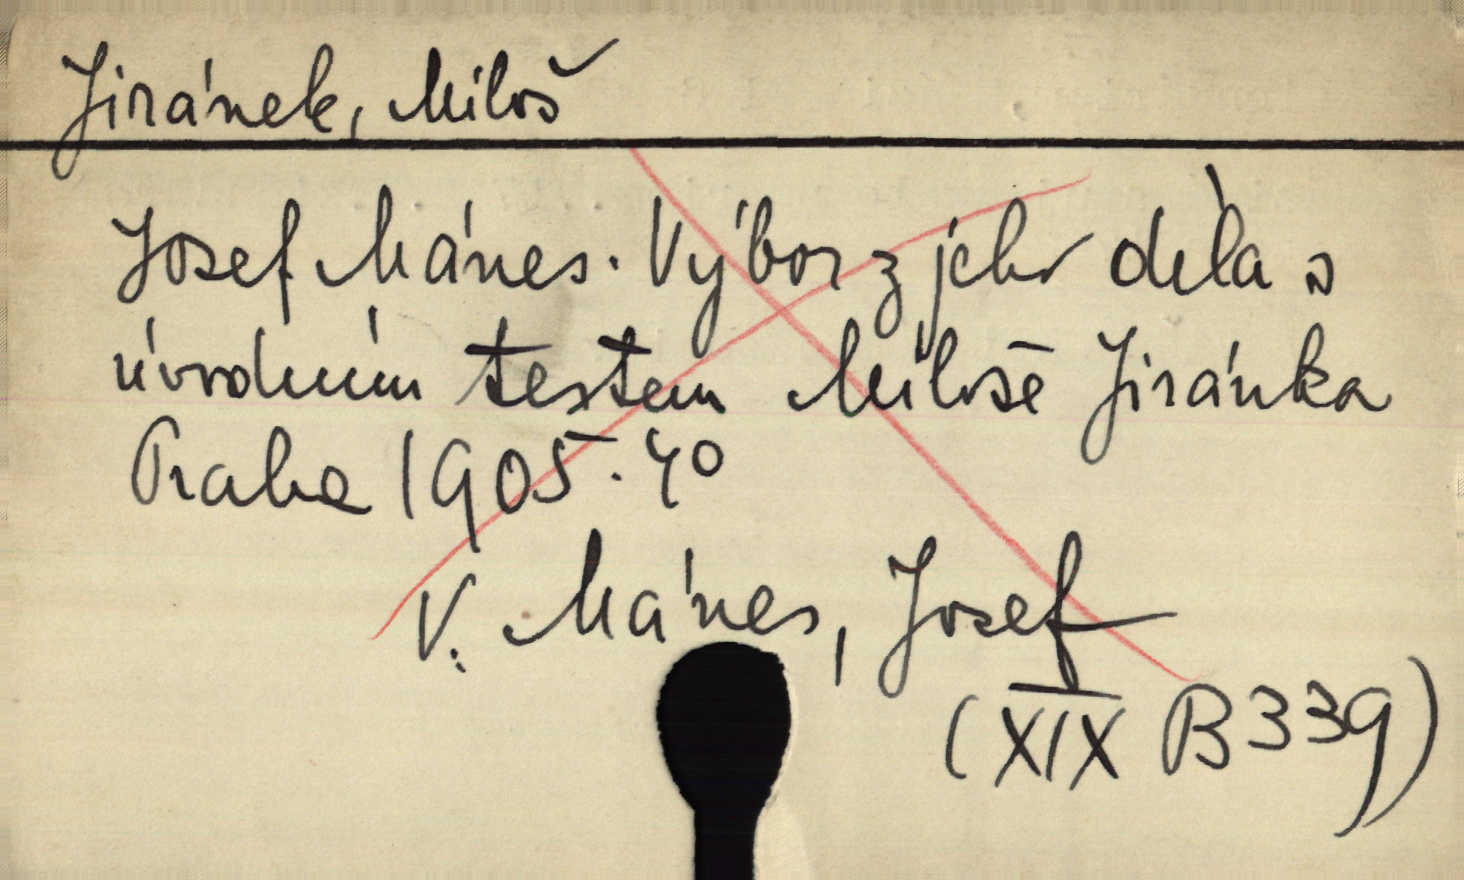 Jiránek, Miloš
Josef Mánes. Výbor z jeho díla s
úvodním textem Miloše Jiránka
Praha 1905. 4°
V. Mánes, Josef
(XIX B 339)